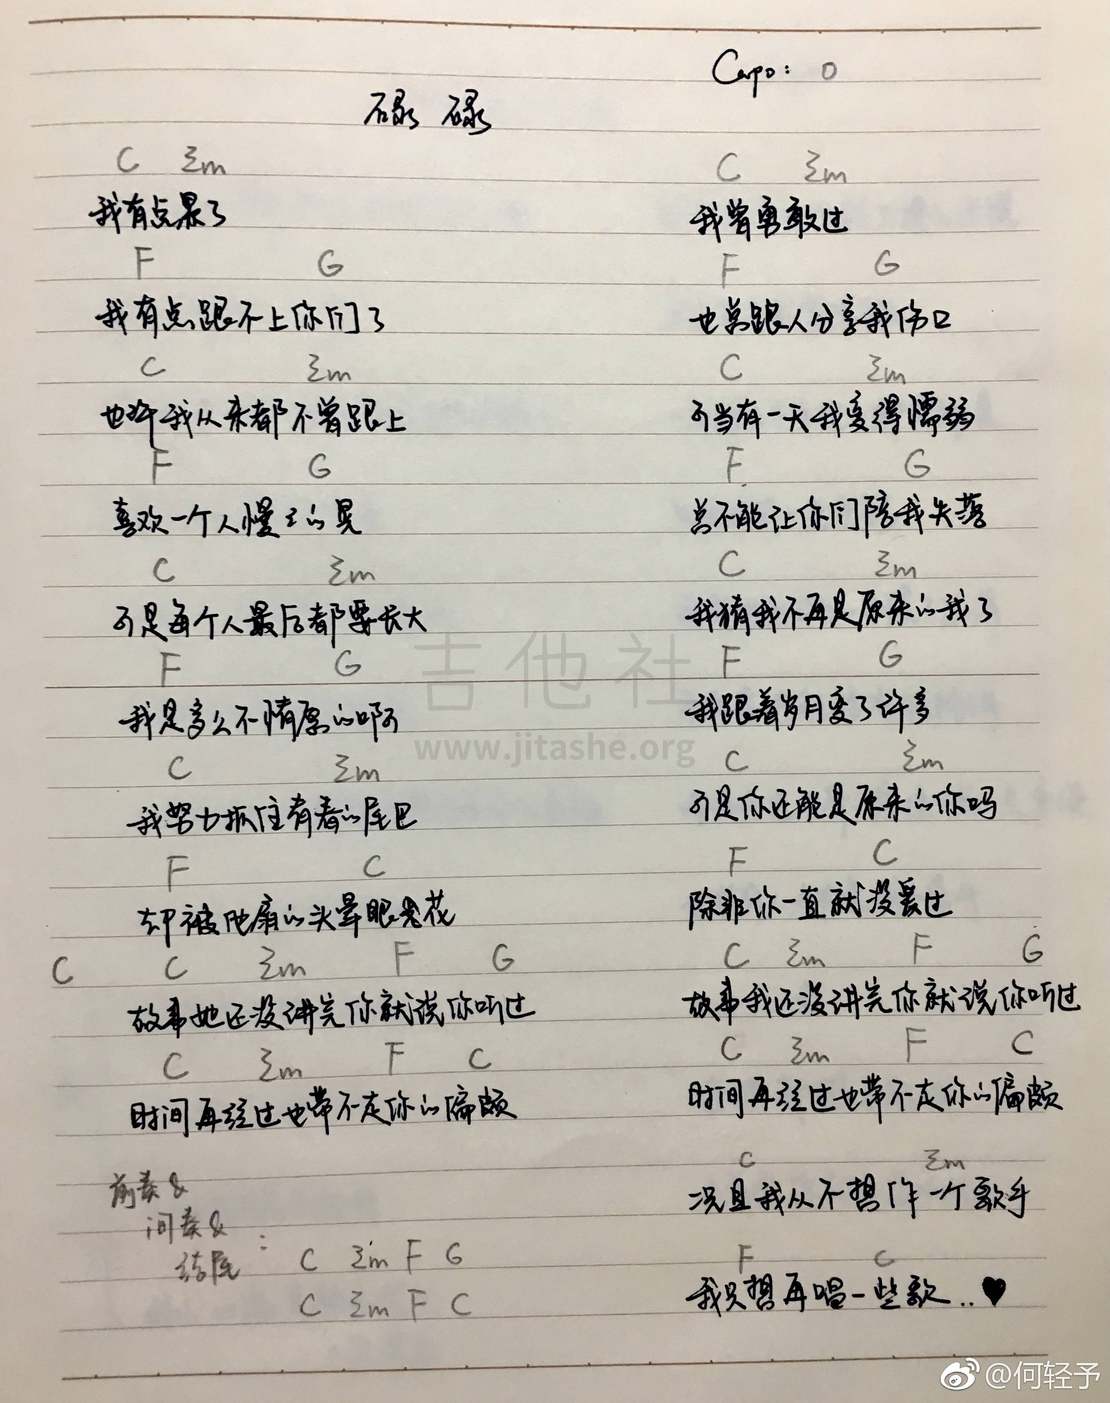 Capo: 0
碌碌
C Em
我有点累了
F G
我有点跟不上你们了
C Em
也许我从来都不曾跟上
F G
喜欢一个人慢々的晃
C Em
可是每个人最后都要长大
F G
我是多么不情愿的啊
C Em
我努力抓住青春的尾巴
F C
却被他扇的头晕眼花
C C Em F G
故事她还没讲完你就说你听过
C Em F C
时间再经过也带不走你的偏颇
前奏&
间奏&
结尾:
C Em F G
C Em F C
C Em
我曾勇敢过
F G
也总跟人分享我伤口
C Em
可当有一天我变得懦弱
F G
总不能让你们陪我失落
C Em
我猜我不再是原来的我了
F G
我跟着岁月变了许多
C Em
可是你还能是原来的你吗
F C
除非你一直就没爱过
C Em F G
故事我还没讲完你就说你听过
C Em F C
时间再经过也带不走你的偏颇
C Em
况且我从不想作一个歌手
F C
我只想再唱一些歌...♥
吉他社
www.jitashe.org
@何轻予